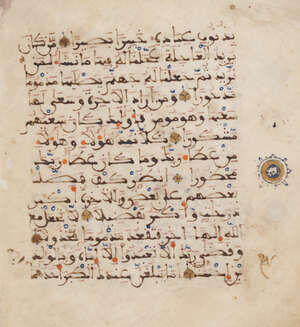 بذنوب عباده خبيرا بصيرا من كان
يريد العاجلة عجلنا له فيها ما نشاء لمن
نريد ثم جعلنا له جهنم يصليها مذموما
مدحورا ومن اراد الاخرة وسعى لها
سعيها وهو مومن فاولئك كان سعيهم
مشكورا كلا نمد هؤلاء وهؤلاء
من عطاء ربك وما كان عطاء ربك
محظورا انظر كيف فضلنا
بعضهم على بعض وللاخرة اكبر
درجات واكبر تفضيلا لا تجعل مع
الله الها اخر فتقعد مذموما مخذولا
وقضى ربك الا تعبدوا الا اياه وبالولد
ين احسنا اما يبلغن عندك الكبر احدهما